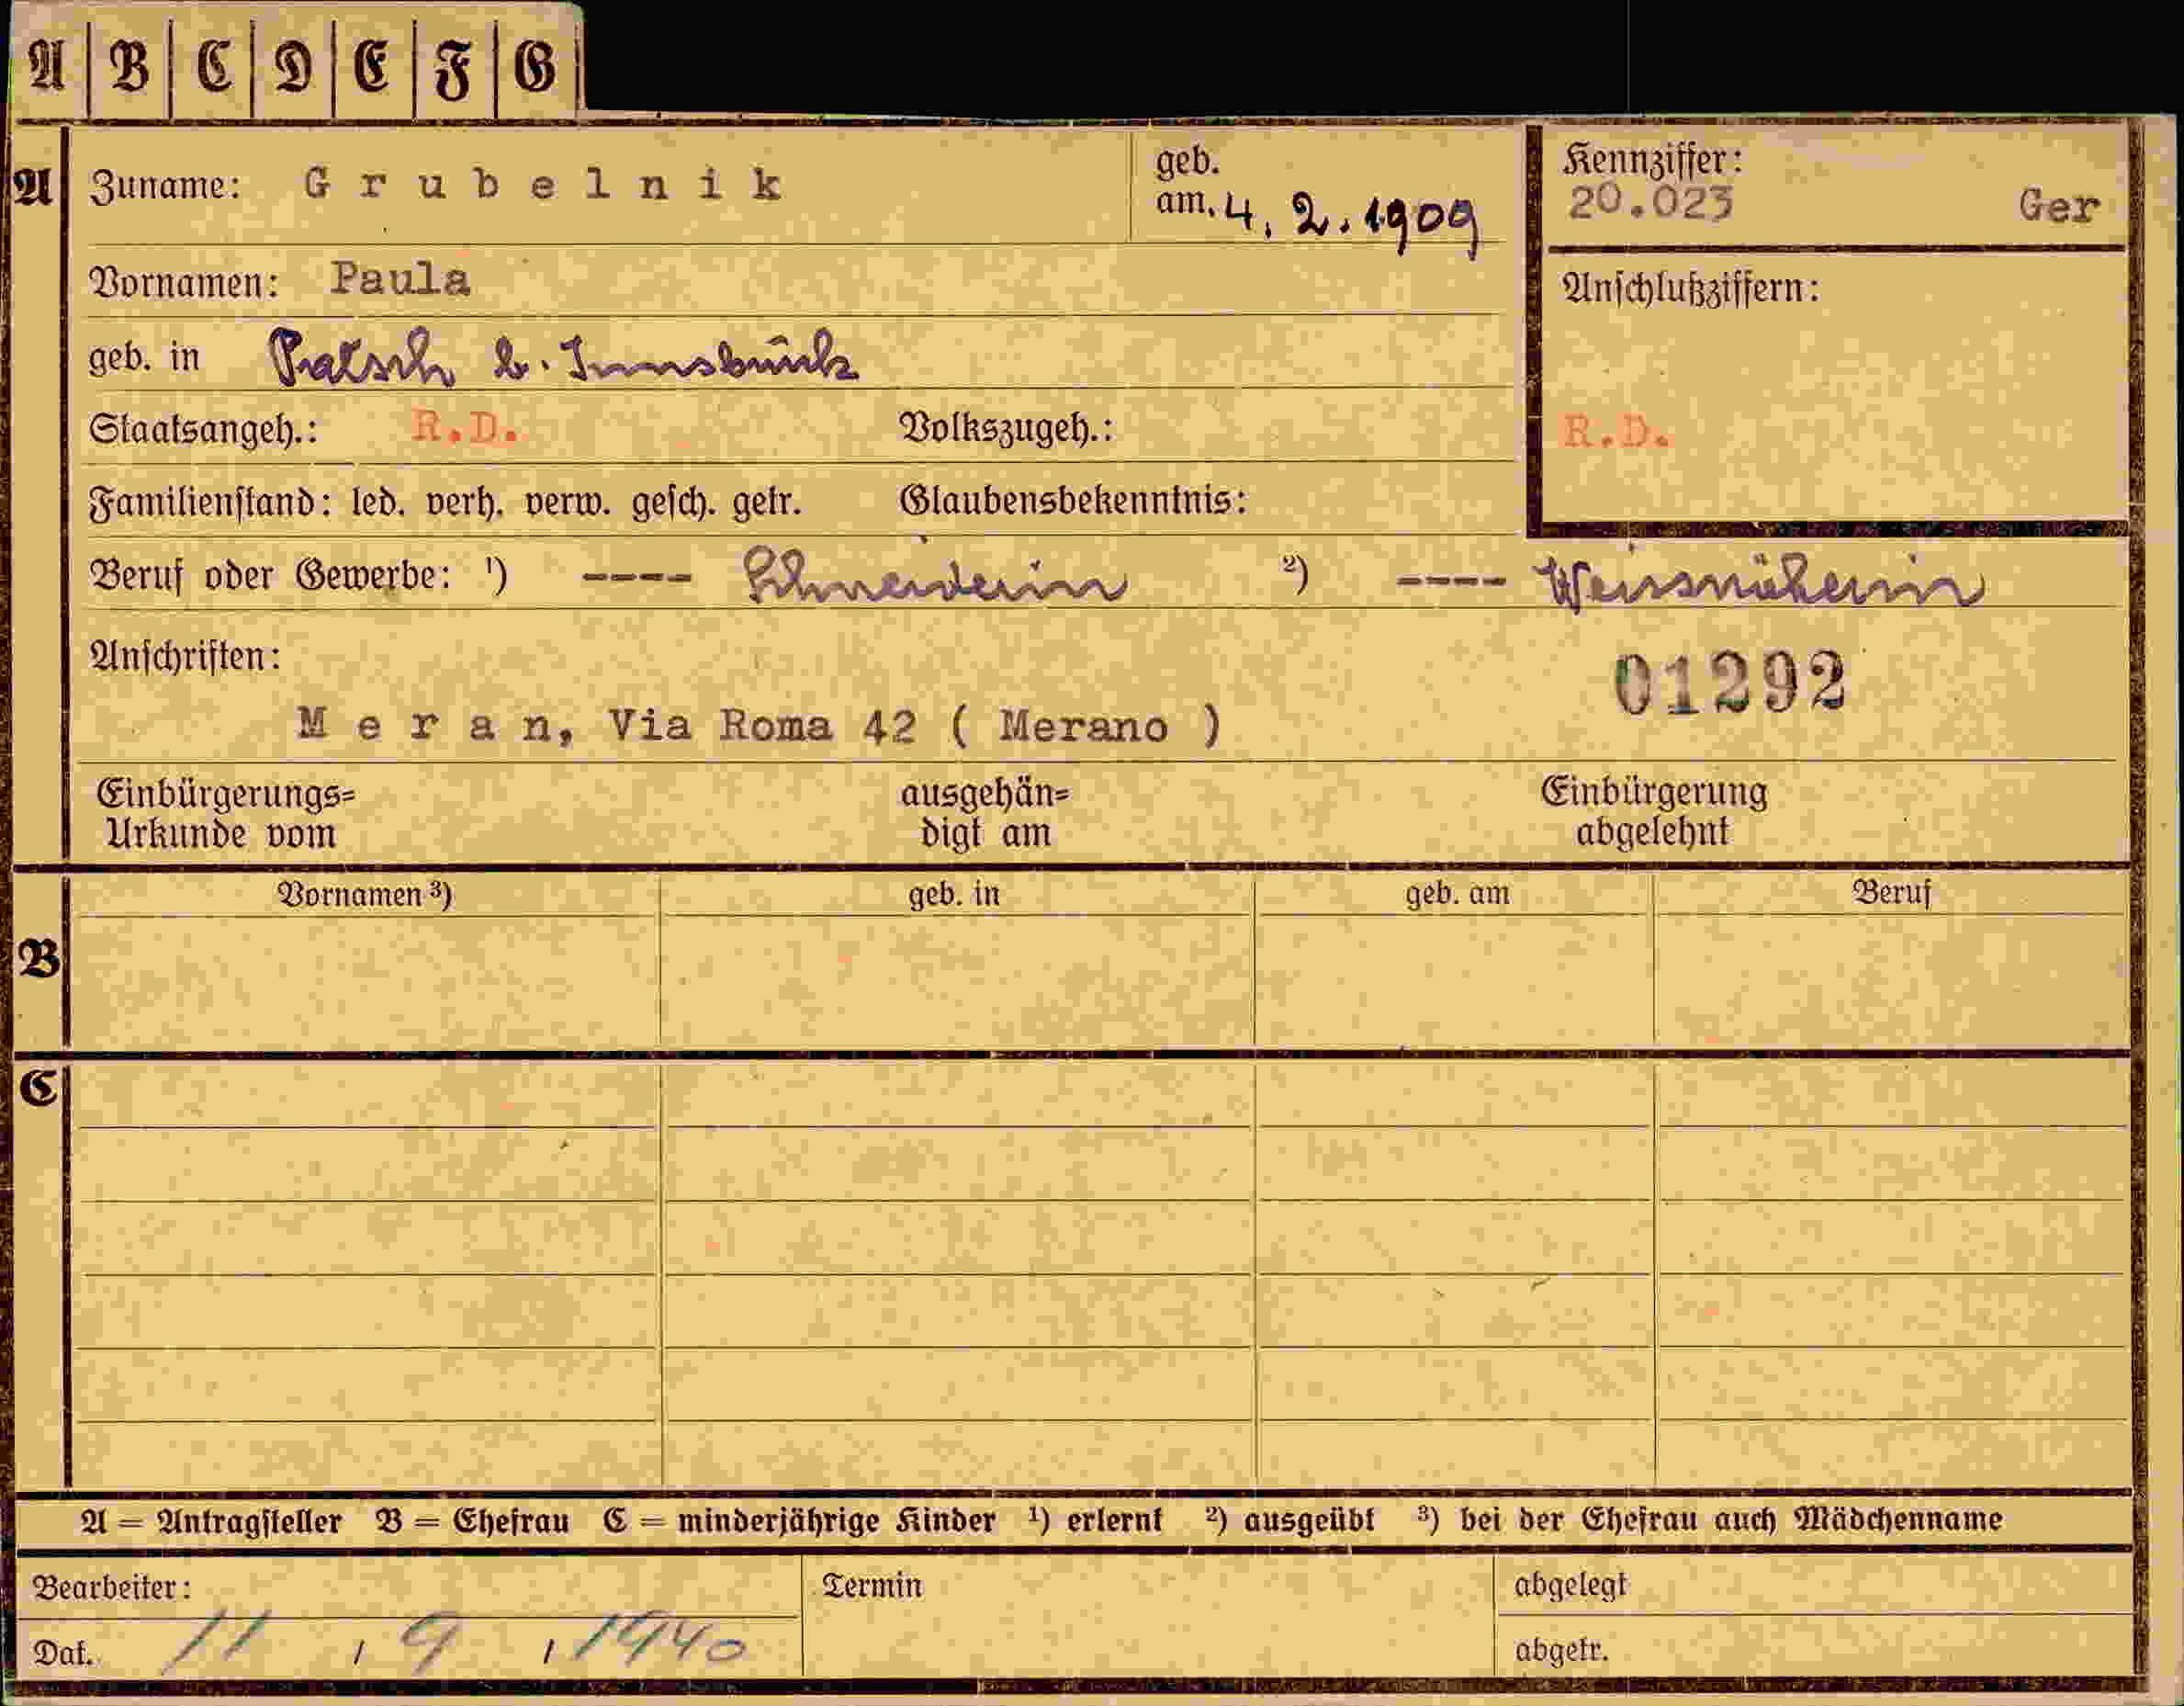 A B C D E F G
A
Zuname: Grubelnik
geb. am. 4. 2. 1909
Kennziffer:
20.023 Ger
Vornamen: Paula
Anschlußziffern:
geb. in Patsch b. Innsbruck
Staatsangeh.: R.D. Volkszugeh.:
R.D.
Familienstand: led. verh. verw. gesch. getr. Glaubensbekenntnis:
Beruf oder Gewerbe: ¹) ---- Schneiderin ²) ---- Weissnäherin
Anschriften:
01292
Meran, Via Roma 42 ( Merano )
Einbürgerungs=
Urkunde vom
ausgehän=
digt am
Einbürgerung
abgelehnt
B
Vornamen ³) geb. in geb. am Beruf
C
A = Antragsteller B = Ehefrau C = minderjährige Kinder ¹) erlernt ²) ausgeübt ³) bei der Ehefrau auch Mädchenname
Bearbeiter: Termin abgelegt
Dat. 11 / 9 / 1940 abgetr.